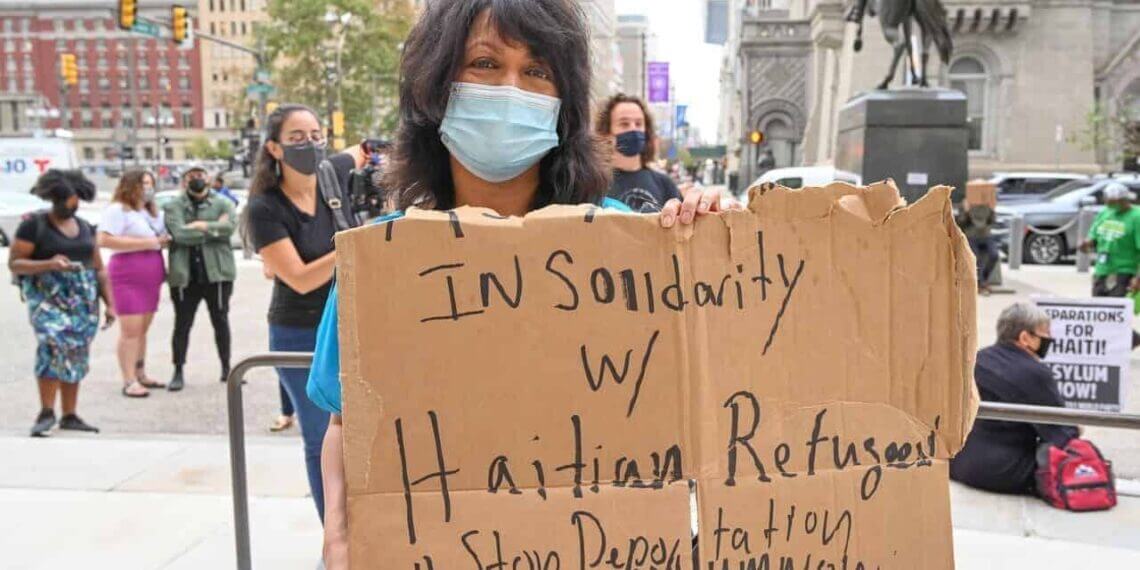 In Solidarity
w/
Haitian Refugees!
Stop Deportation
10
PARATIONS
FOR
HAITI!
SYLUM
NOW!